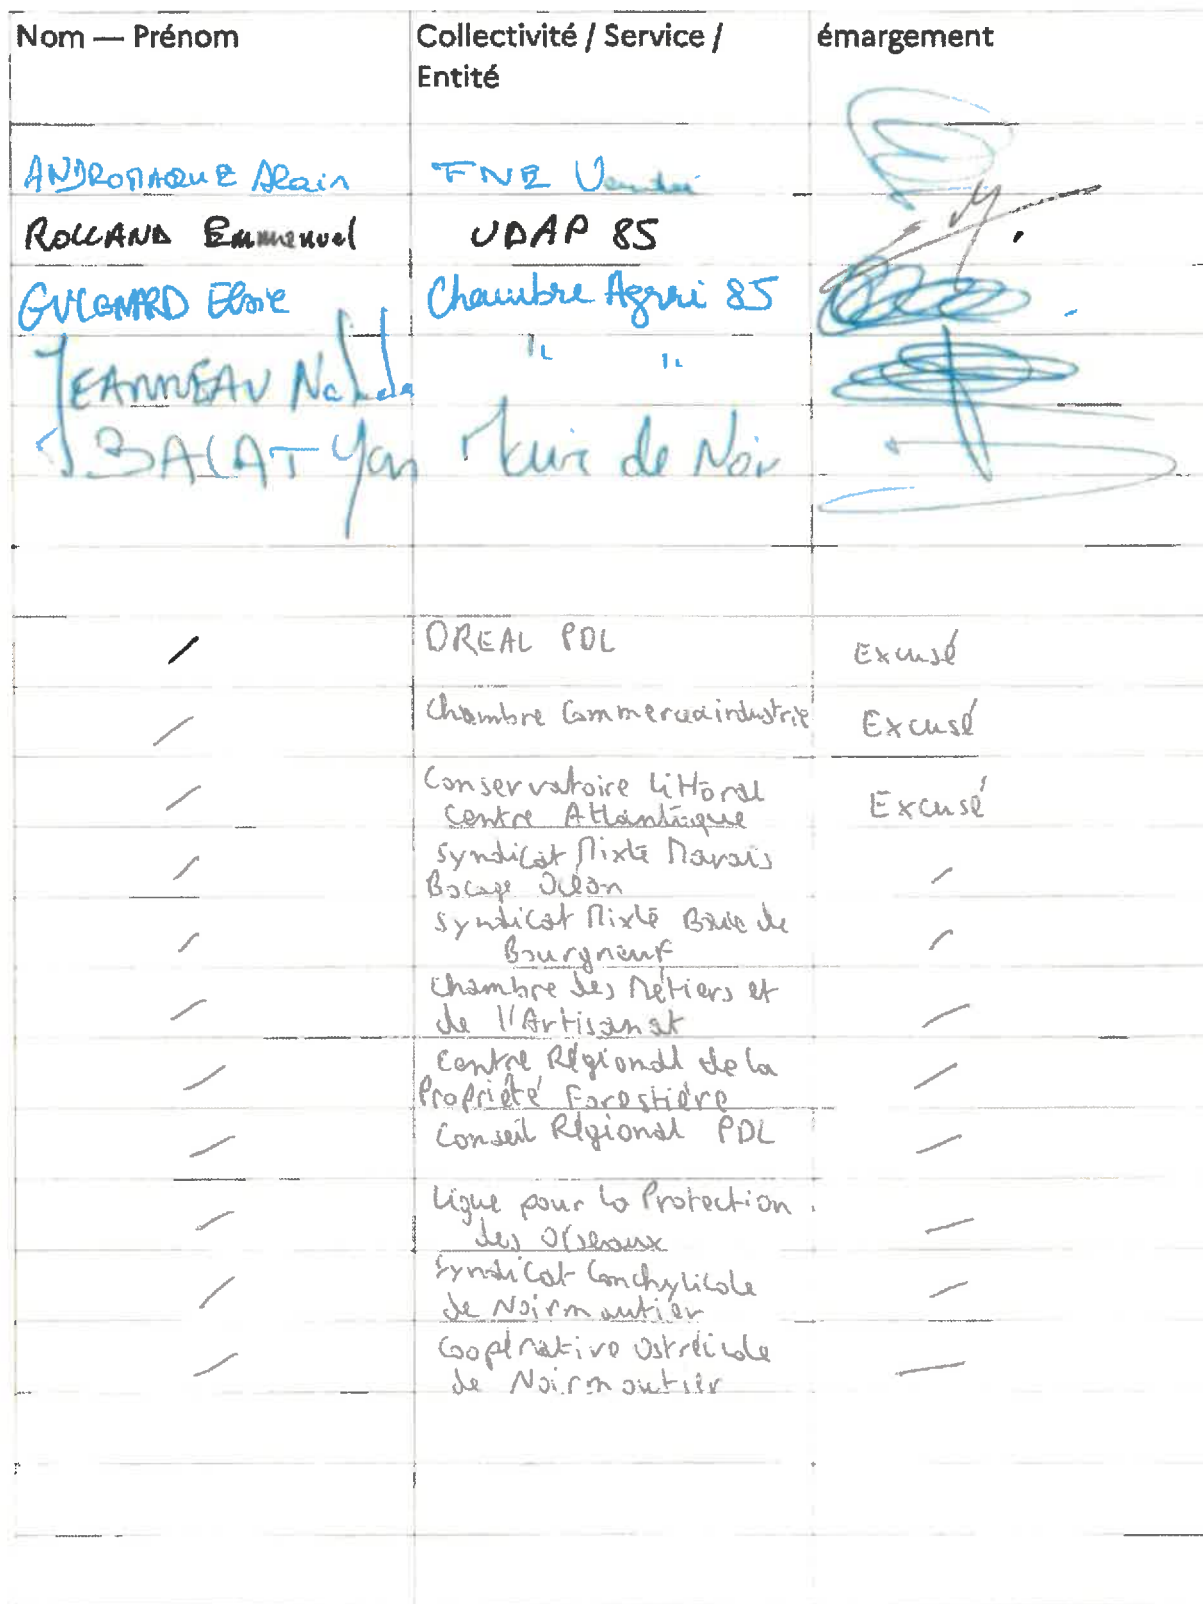 Nom — Prénom Collectivité / Service / émargement
Entité
ANDROMAQUE Alain FNE Vendée
ROLLAND Emmanuel UDAP 85
GUIGNARD Elsie Chambre Agri 85
JEANNEAU " "
BALAT Yan de Noir
DREAL PDL Excusé
Chambre Commerce industrie Excusé
Conservatoire Littoral
Centre Atlantique Excusé
Syndicat Mixte Marais
Bocage Océan
Syndicat Mixte Baie de
Bourgneuf
Chambre des Métiers et
de l'Artisanat
Centre Régional de la
Propriété Forestière
Conseil Régional PDL
Ligue pour la Protection
des Oiseaux
Syndicat Conchylicole
de Noirmoutier
Coopérative Ostréicole
de Noirmoutier